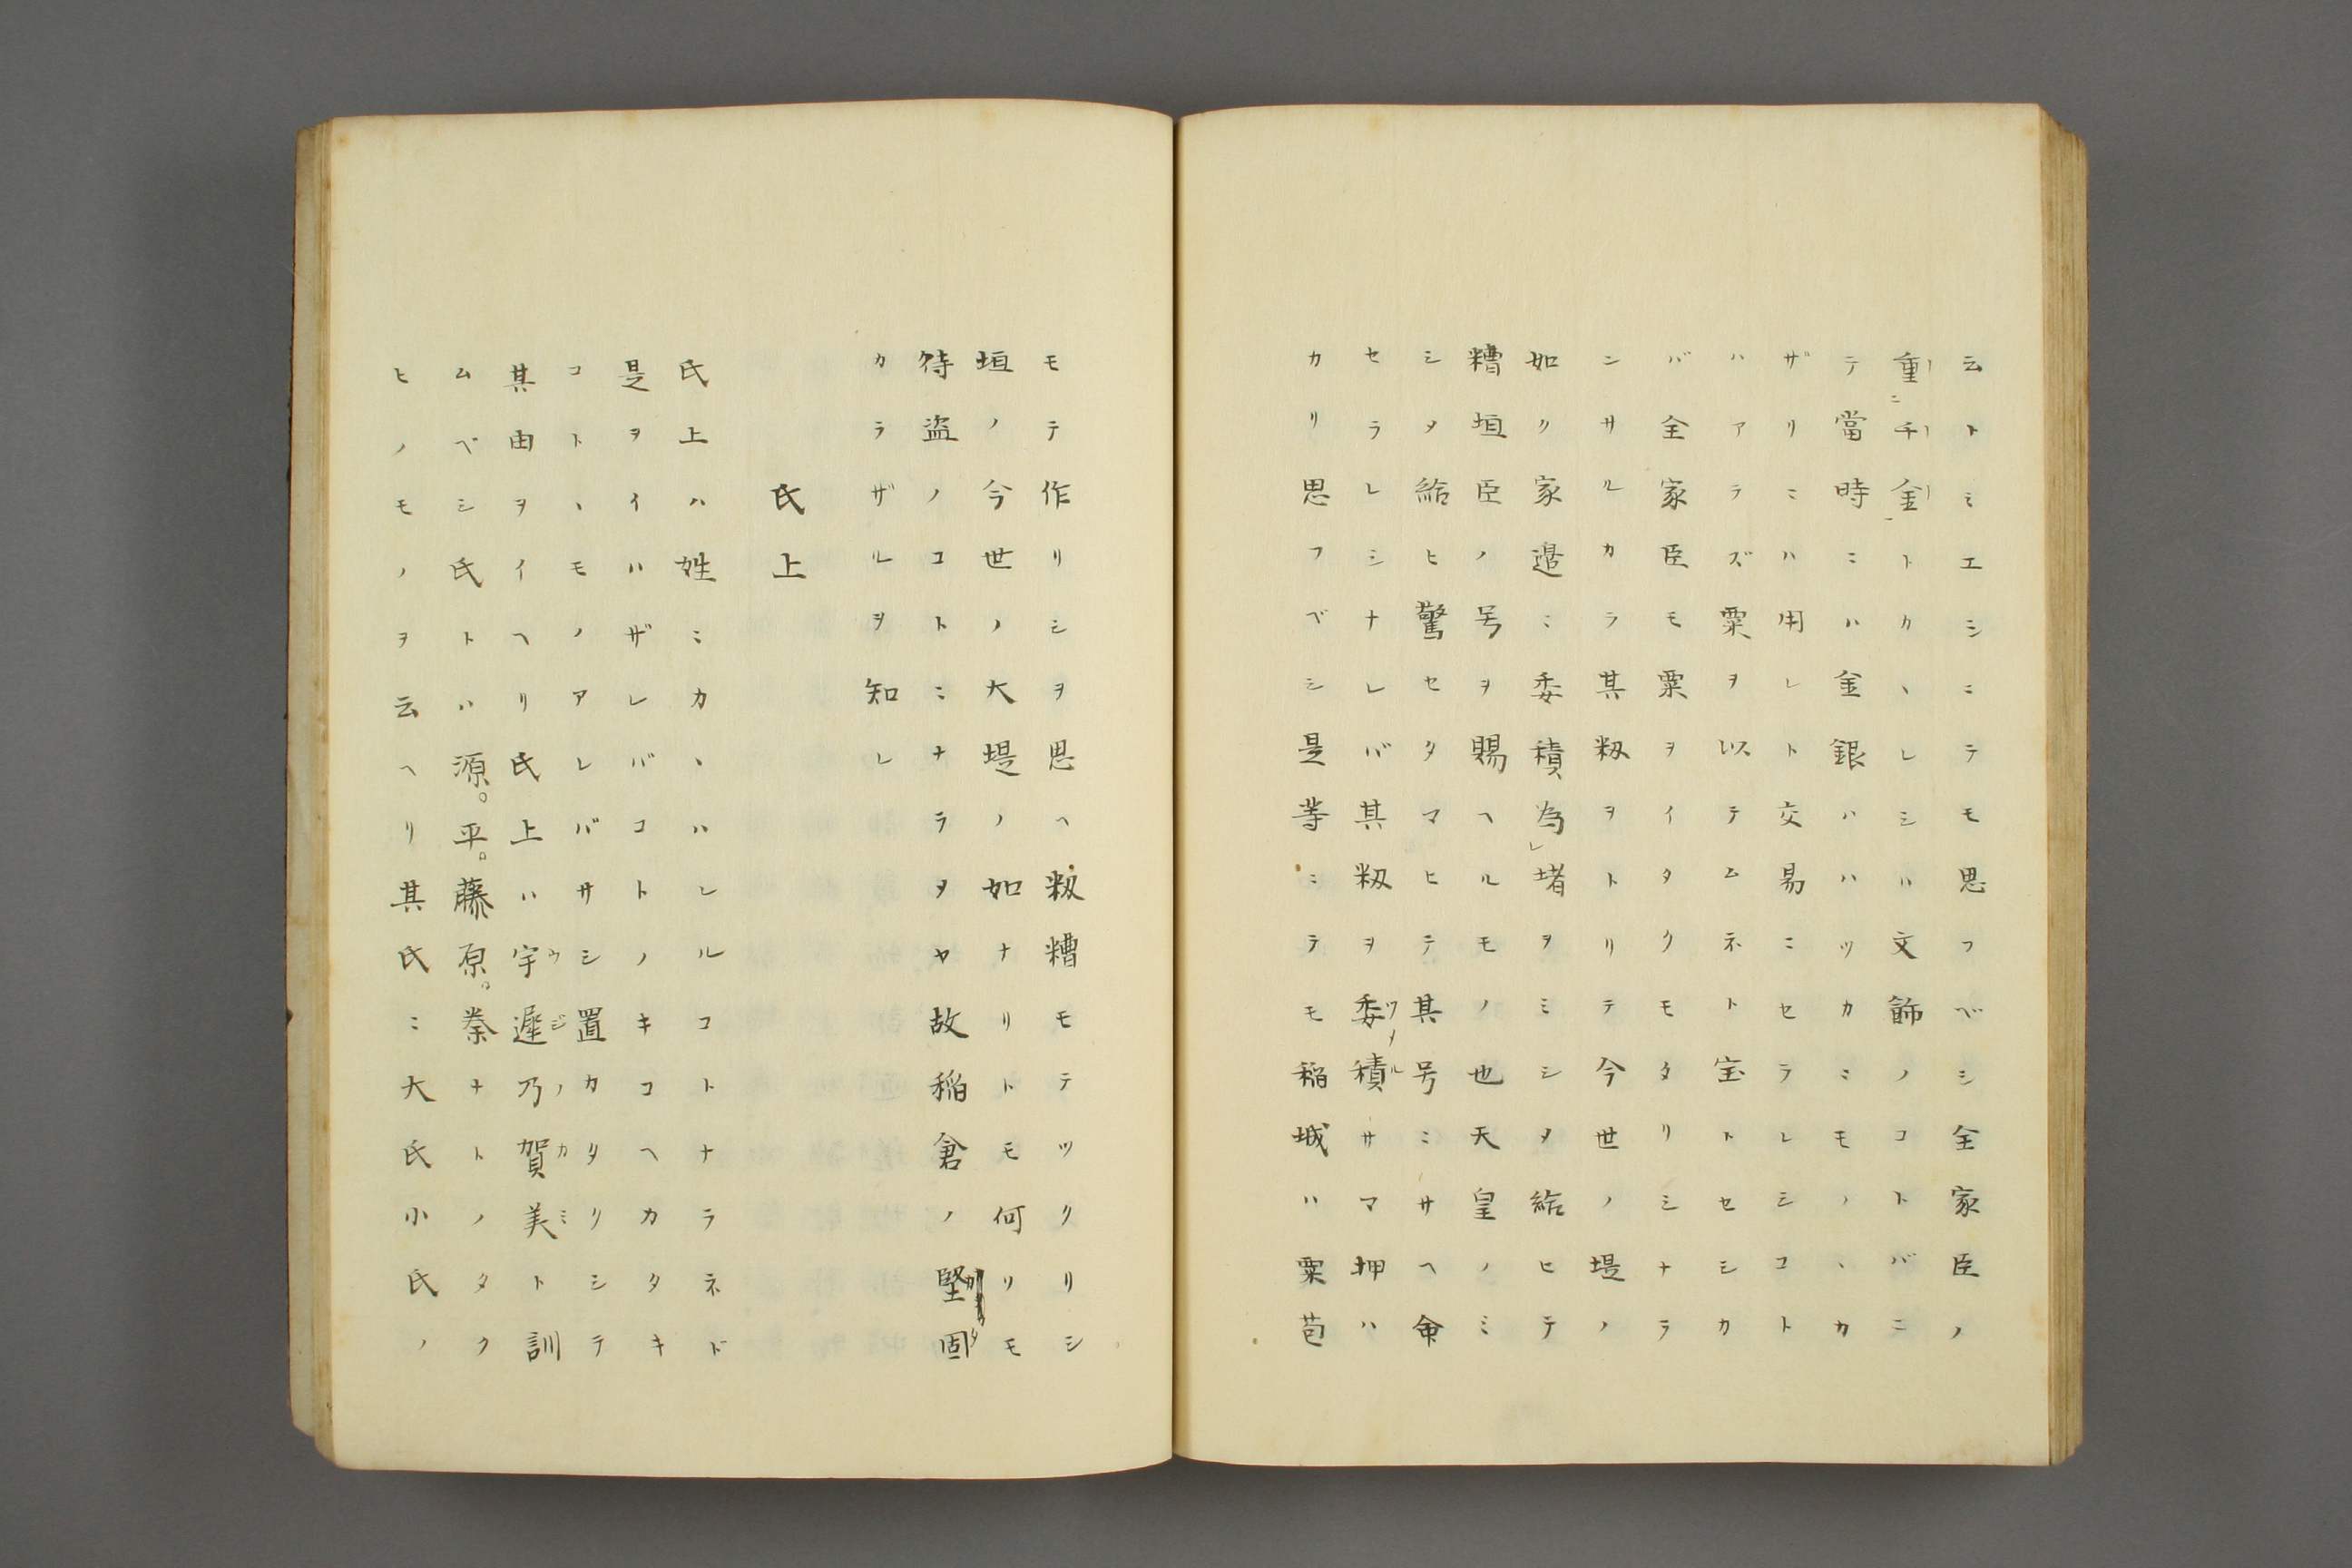 云トミエシニテモ思フベシ全家臣ノ
重千金トカヽレシハ文飾ノコトバニ
テ當時ニハ金銀ハハツカニモノヽカ
ザリニハ用レト交易ニセラレシコト
ハアラズ粟ヲ以テムネト宝トセシカ
バ全家臣モ粟ヲイタクモタリシナラ
ンサルカラ其籾ヲトリテ今世ノ堤ノ
如ク家邉ニ委積為堵ヲミシタ給ヒテ
糟垣臣ノ号ヲ賜ヘルモノ也天皇ノミ
シタ給ヒ驚セタマヒテ其号ニサヘ命
セラレシナレバ其籾ヲ委積サマ押ハ
カリ思フベシ是等ニテモ稲城ハ粟苞
モテ作リシヲ思ヘ籾糟モテツクリシ
垣ノ今世ノ大堤ノ如ナリトモ何リモ
待盗ノコトニナラヌヤ故稲倉ノ堅固
カラザルヲ知レ
氏上
氏上ハ姓ニカヽハレルコトナラネド
是ヲイハザレバコトノキコヘカタキ
コトヽモノアレバサシ置カタリシテ
其由ヲイヘリ氏上ハ宇遅乃賀美ト訓
ムベシ氏トハ源。平。藤原。秦ナトノタク
ヒノモノヲ云ヘリ其氏ニ大氏小氏ノ